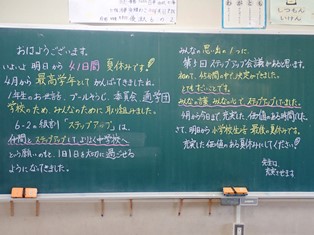 おはようございます。
いよいよ 明日から 41日間 夏休みです!
4月から 最高学年として がんばってきましたね。
1年生のお世話、プールそうじ、委員会、通学団
学校のため、みんなのために 取り組みました。
6-2の級訓「ステップアップ」は、
仲間とステップアップして、よりよく中学校へ
という願いのもと、1日1日を大切に過ごせる
ようになってきました。
みんなの思い出の1つに、
第1回ステップアップ会議があると思います。
初めて、45分間の中で、決定ができました。
とてもすごいことです。
みんなの議 みんなでステップアップしていました。
4月から今日まで、充実した、価値のある時間でした。
さて、明日から 小学校生活 最後の夏休みです。
充実した 価値のある夏休みにしてください!
先生も
充実させます
しつもん
いけん